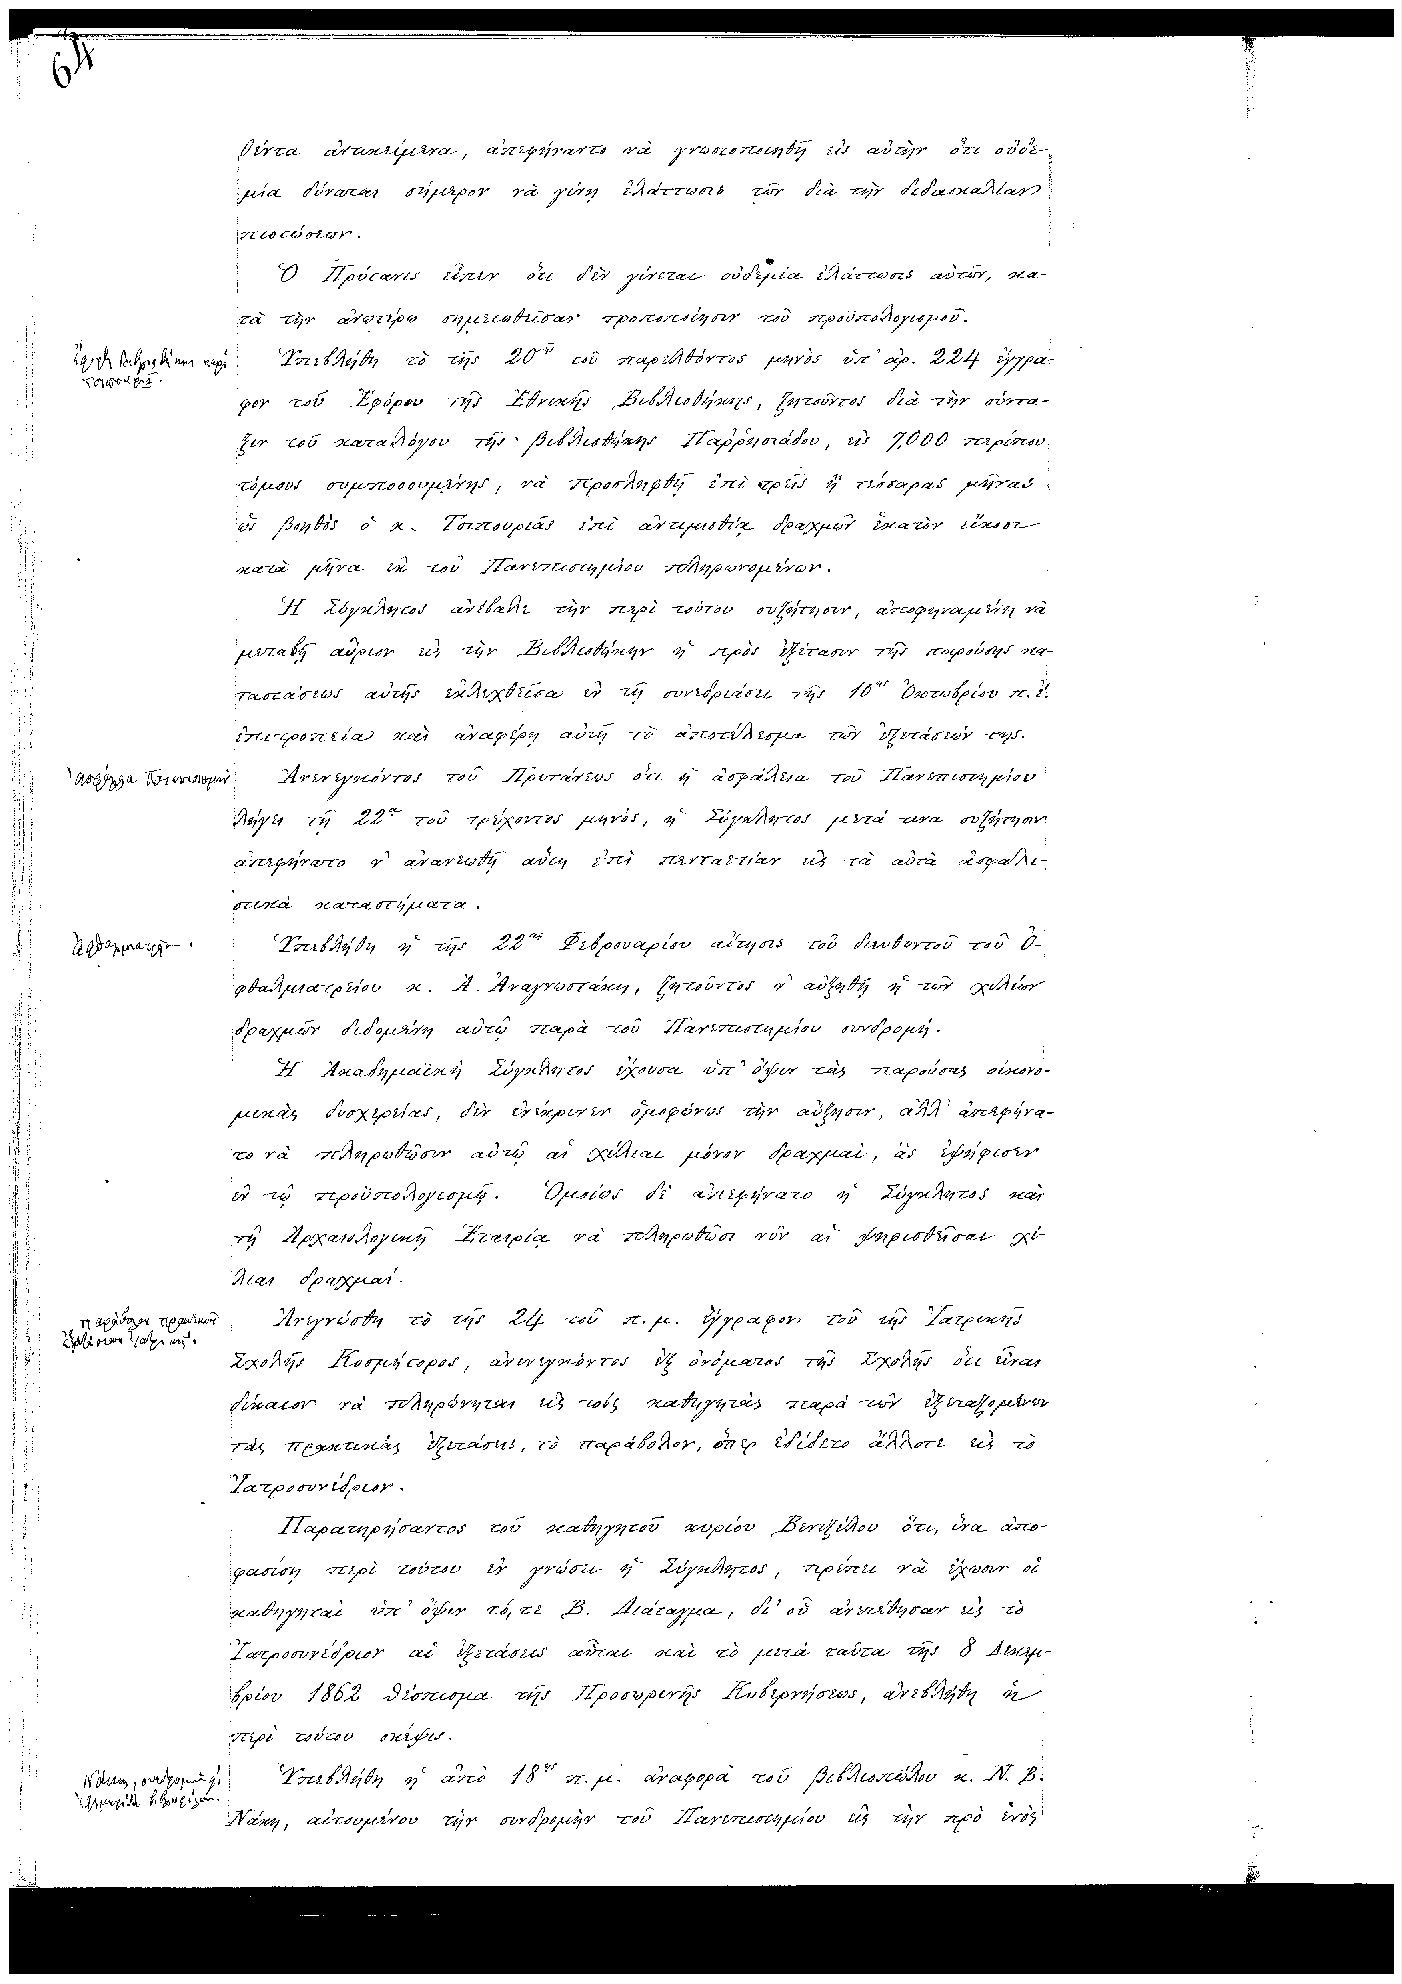 64
θέντα ἀντικείμενα, ἀπεφήναντο νὰ γνωστοποιηθῇ εἰς αὐτὴν ὅτι οὐδε-
μία δύναται σήμερον νὰ γίνῃ ἐλάττωσις τῶν διὰ τὴν διδασκαλίαν
πιστώσεων.
Ὁ Πρύτανις εἶπεν ὅτι δὲν γίνεται οὐδεμία ἐλάττωσις αὐτῶν, κα-
τὰ τὴν ἀνωτέρω σημειωθεῖσαν τροποποίησιν τοῦ προϋπολογισμοῦ.
Ὑπεβλήθη τὸ τῆς 20ῆς τοῦ παρελθόντος μηνὸς ὑπ' ἀρ. 224 ἔγγρα-
φον τοῦ Ἐφόρου τῆς Ἐθνικῆς Βιβλιοθήκης, ζητοῦντος διὰ τὴν σύντα-
ξιν τοῦ καταλόγου τῆς βιβλιοθήκης Παῤῥησιάδου, εἰς 7,000 περίπου
τόμους συμποσουμένης, νὰ προσληφθῇ ἐπὶ τρεῖς ἢ τέσσαρας μῆνας
ὡς βοηθὸς ὁ κ. Τσιπουριᾶς ἐπὶ ἀντιμισθίᾳ δραχμῶν ἑκατὸν εἴκοσι
κατὰ μῆνα ἐκ τοῦ Πανεπιστημίου πληρωνομένων.
Ἡ Σύγκλητος ἀνέβαλε τὴν περὶ τούτου συζήτησιν, ἀποφηναμένη νὰ
μεταβῇ αὔριον εἰς τὴν Βιβλιοθήκην ἡ πρὸς ἐξέτασιν τῆς παρούσης κα-
ταστάσεως αὐτῆς ἐκλεχθεῖσα ἐν τῇ συνεδριάσει τῆς 10ης Ὀκτωβρίου π. ἔ.
ἐπιτροπεία καὶ ἀναφέρῃ αὐτῇ τὸ ἀποτέλεσμα τῶν ἐξετάσεών της.
Ἀσφάλεια Πανεπιστημίου
Ἀνενεγκόντος τοῦ Πρυτάνεως ὅτι ἡ ἀσφάλεια τοῦ Πανεπιστημίου
λήγει τῇ 22ᾳ τοῦ τρέχοντος μηνὸς, ἡ Σύγκλητος μετά τινα συζήτησιν
ἀπεφήνατο ν' ἀνανεωθῇ αὕτη ἐπὶ πενταετίαν εἰς τὰ αὐτὰ ἀσφαλι-
στικὰ καταστήματα.
Ὑπεβλήθη ἡ τῆς 22ας Φεβρουαρίου αἴτησις τοῦ διευθυντοῦ τοῦ Ὀ-
φθαλμιατρείου κ. Ἀ. Ἀναγνωστάκη, ζητοῦντος ν' αὐξηθῇ ἡ τῶν χιλίων
δραχμῶν διδομένη αὐτῷ παρὰ τοῦ Πανεπιστημίου συνδρομή.
Ἡ Ἀκαδημαϊκὴ Σύγκλητος ἔχουσα ὑπ' ὄψιν τὰς παρούσας οἰκονο-
μικὰς δυσχερείας, δὲν ἐνέκρινεν ὁμοφώνως τὴν αὔξησιν, ἀλλ' ἀπεφήνα-
το νὰ πληρωθῶσιν αὐτῷ αἱ χίλιαι μόνον δραχμαὶ, ἃς ἐψήφισεν
ἐν τῷ προϋπολογισμῷ. Ὁμοίως δὲ ἀπεφήνατο ἡ Σύγκλητος καὶ
τῇ Ἀρχαιολογικῇ Ἑταιρίᾳ νὰ πληρωθῶσι νῦν αἱ ψηφισθεῖσαι χί-
λιαι δραχμαί.
Ἀνεγνώσθη τὸ τῆς 24 τοῦ π. μ. ἔγγραφον τοῦ τῆς Ἰατρικῆς
Σχολῆς Κοσμήτορος, ἀνενεγκόντος ἐξ ὀνόματος τῆς Σχολῆς ὅτι εἶναι
δίκαιον νὰ πληρώνηται εἰς τοὺς καθηγητὰς παρὰ τῶν ἐξεταζομένων
τὰς πρακτικὰς ἐξετάσεις, τὸ παράβολον, ὅπερ ἐδίδετο ἄλλοτε εἰς τὸ
Ἰατροσυνέδριον.
Παρατηρήσαντος τοῦ καθηγητοῦ κυρίου Βενιζέλου ὅτι, ἵνα ἀπο-
φασίσῃ περὶ τούτου ἐν γνώσει ἡ Σύγκλητος, πρέπει νὰ ἔχωσιν οἱ
καθηγηταὶ ὑπ' ὄψιν τό, τε Β. Διάταγμα, δι' οὗ ἀνετέθησαν εἰς τὸ
Ἰατροσυνέδριον αἱ ἐξετάσεις αὗται καὶ τὸ μετὰ ταῦτα τῆς 8 Δεκεμ-
βρίου 1862 θέσπισμα τῆς Προσωρινῆς Κυβερνήσεως, ἀνεβλήθη ἡ
περὶ τούτου σκέψις.
Ὑπεβλήθη ἡ ἀπὸ 18ης π. μ. ἀναφορὰ τοῦ βιβλιοπώλου κ. Ν. Β.
Νάκη, αἰτουμένου τὴν συνδρομὴν τοῦ Πανεπιστημίου εἰς τὴν πρὸ ἑνὸς